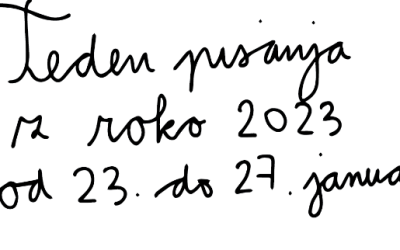 Teden pisanja
z roko 2023
od 23. do 27. janua